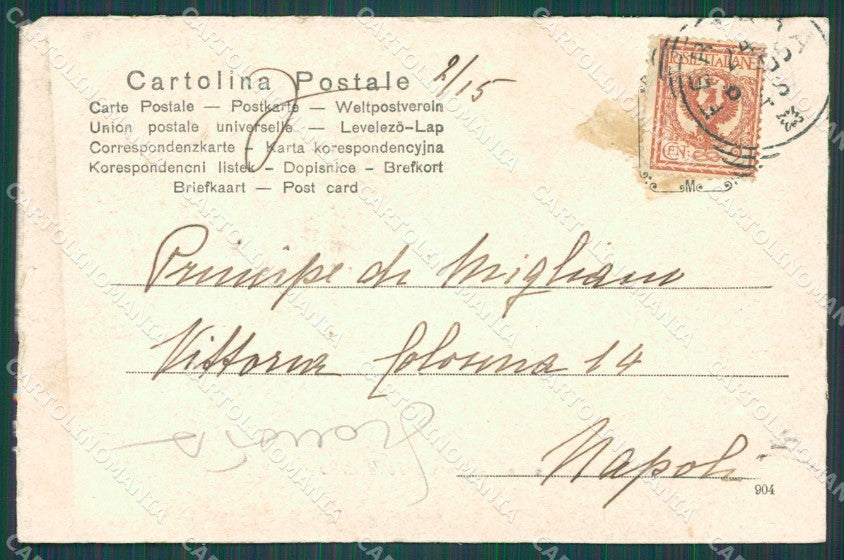 Cartolina Postale
2/15
Carte Postale — Postkarte — Weltpostverein
Union postale universelle — Levelezö-Lap
Correspondenzkarte - Karta korespondencyjna
Korespondencni listek - Dopisnice - Brefkort
Briefkaart — Post card
POSTE ITALIANE
M
Principe di Migliano
Vittoria Colonna 14
Napoli
904
CARTOLINOMANIA